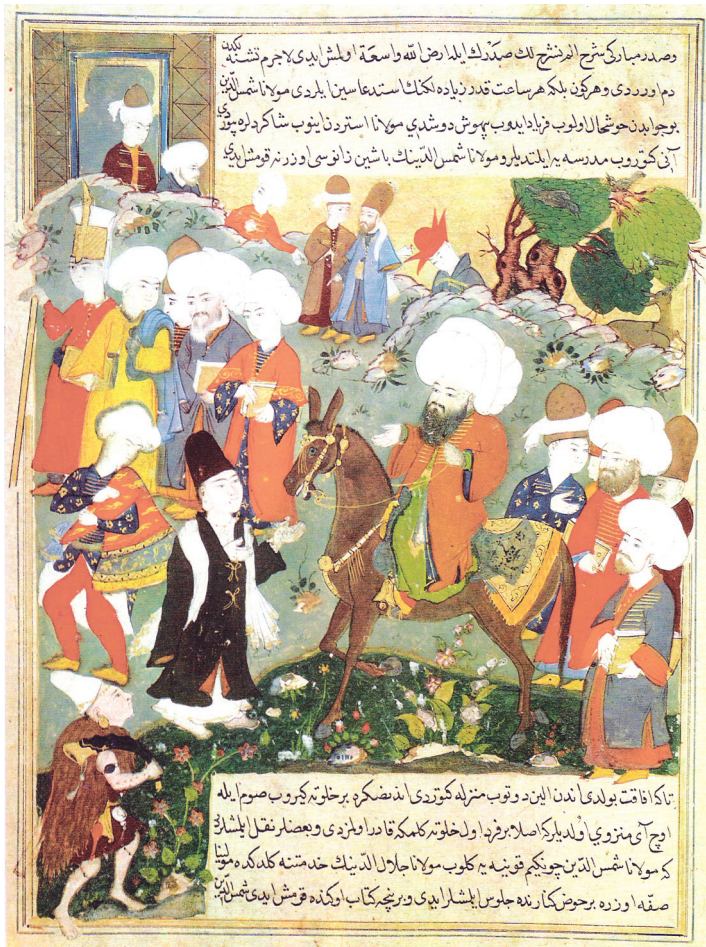 وصدر مباركى شرح الم نشرح لك صدرك ايله ارض الله واسعة اولمش ايدى لاجرم تشنه لكدن
دم اورردى وهركون بلكه هر ساعت قدر زياده لكنك استدعاسين ايلردى مولانا شمس الدين
بو جوابدن خوشحال اولوب فرياد ايدوب بيهوش دوشدي مولانا استردن اينوب شاكردلره بيوردي
آنى كتوروب مدرسه يه ايلتديلر و مولانا شمس الدينك باشين زانوسى اوزرنه قومش ايدي
تا كه افاقت بولدى اندن الين دوتوب منزله كتوردى اندنصكره بر خلوته كيروب صوم ايله
اوچ آى منزوي اولديلر كه اصلا بر فرد اول خلوته كلمكه قادر اولمزدى و بعضلر نقل ايلمشلر
كه مولانا شمس الدين چونكيم قونيه يه كلوب مولانا جلال الدينك خدمتنه كلدكده مولينا
صفه اوزره بر حوض كنارنده جلوس ايلمشلر ايدى و برنجه كتاب اوكنده قومش ايدى شمس الدين